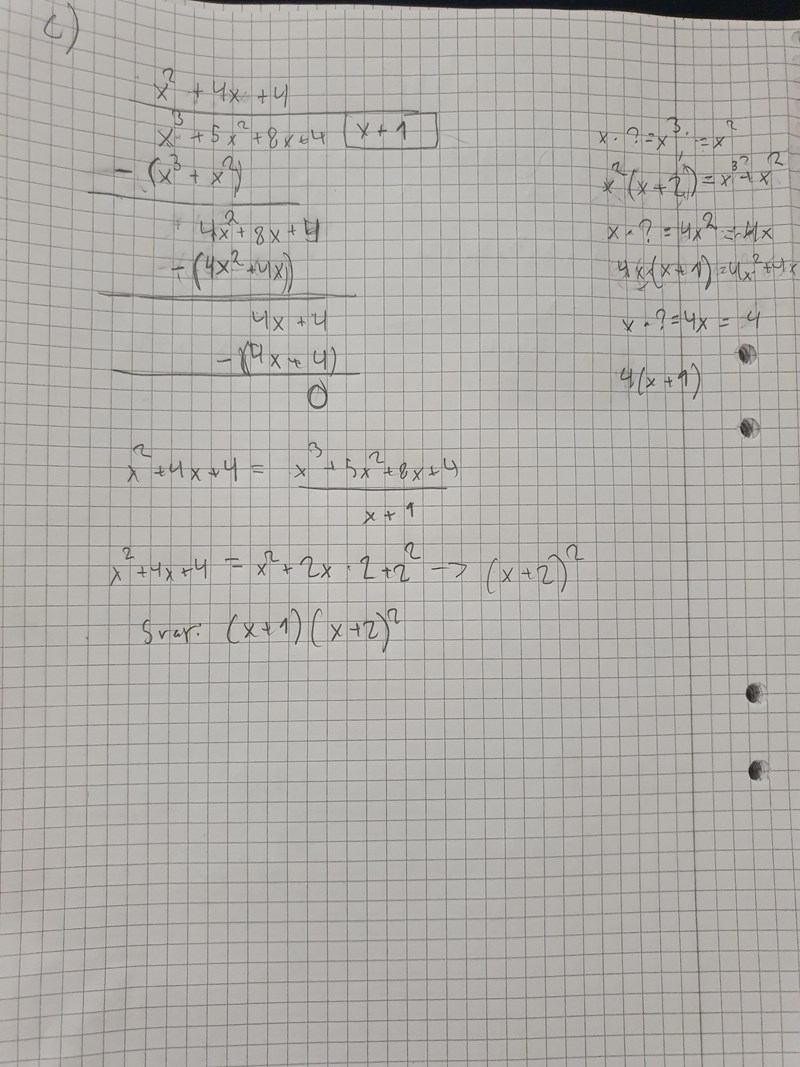 c)
x² + 4x + 4
x³ + 5x² + 8x + 4 x + 1
- (x³ + x²)
4x² + 8x + 4
- (4x² + 4x)
4x + 4
- (4x + 4)
0
x · ? = x³ = x²
x²(x + 2) = x³ + x²
x · ? = 4x² = 4x
4x(x + 1) = 4x² + 4x
x · ? = 4x = 4
4(x + 1)
x² + 4x + 4 = x³ + 5x² + 8x + 4
x + 1
x² + 4x + 4 = x² + 2x · 2 + 2² -> (x + 2)²
Svar: (x + 1)(x + 2)²